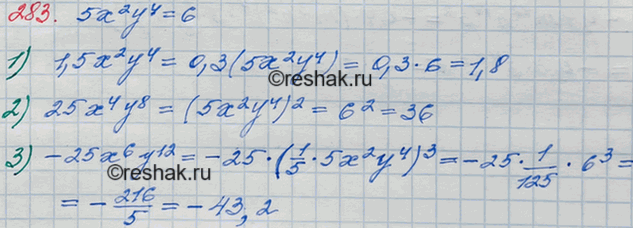 283. 5x²y⁴=6
1) 1,5x²y⁴ = 0,3(5x²y⁴) = 0,3·6 = 1,8
©reshak.ru
2) 25x⁴y⁸ = (5x²y⁴)² = 6² = 36
3) -25x⁶y¹² = -25·(1/5·5x²y⁴)³ = -25·1/125·6³ =
= -216/5 = -43,2